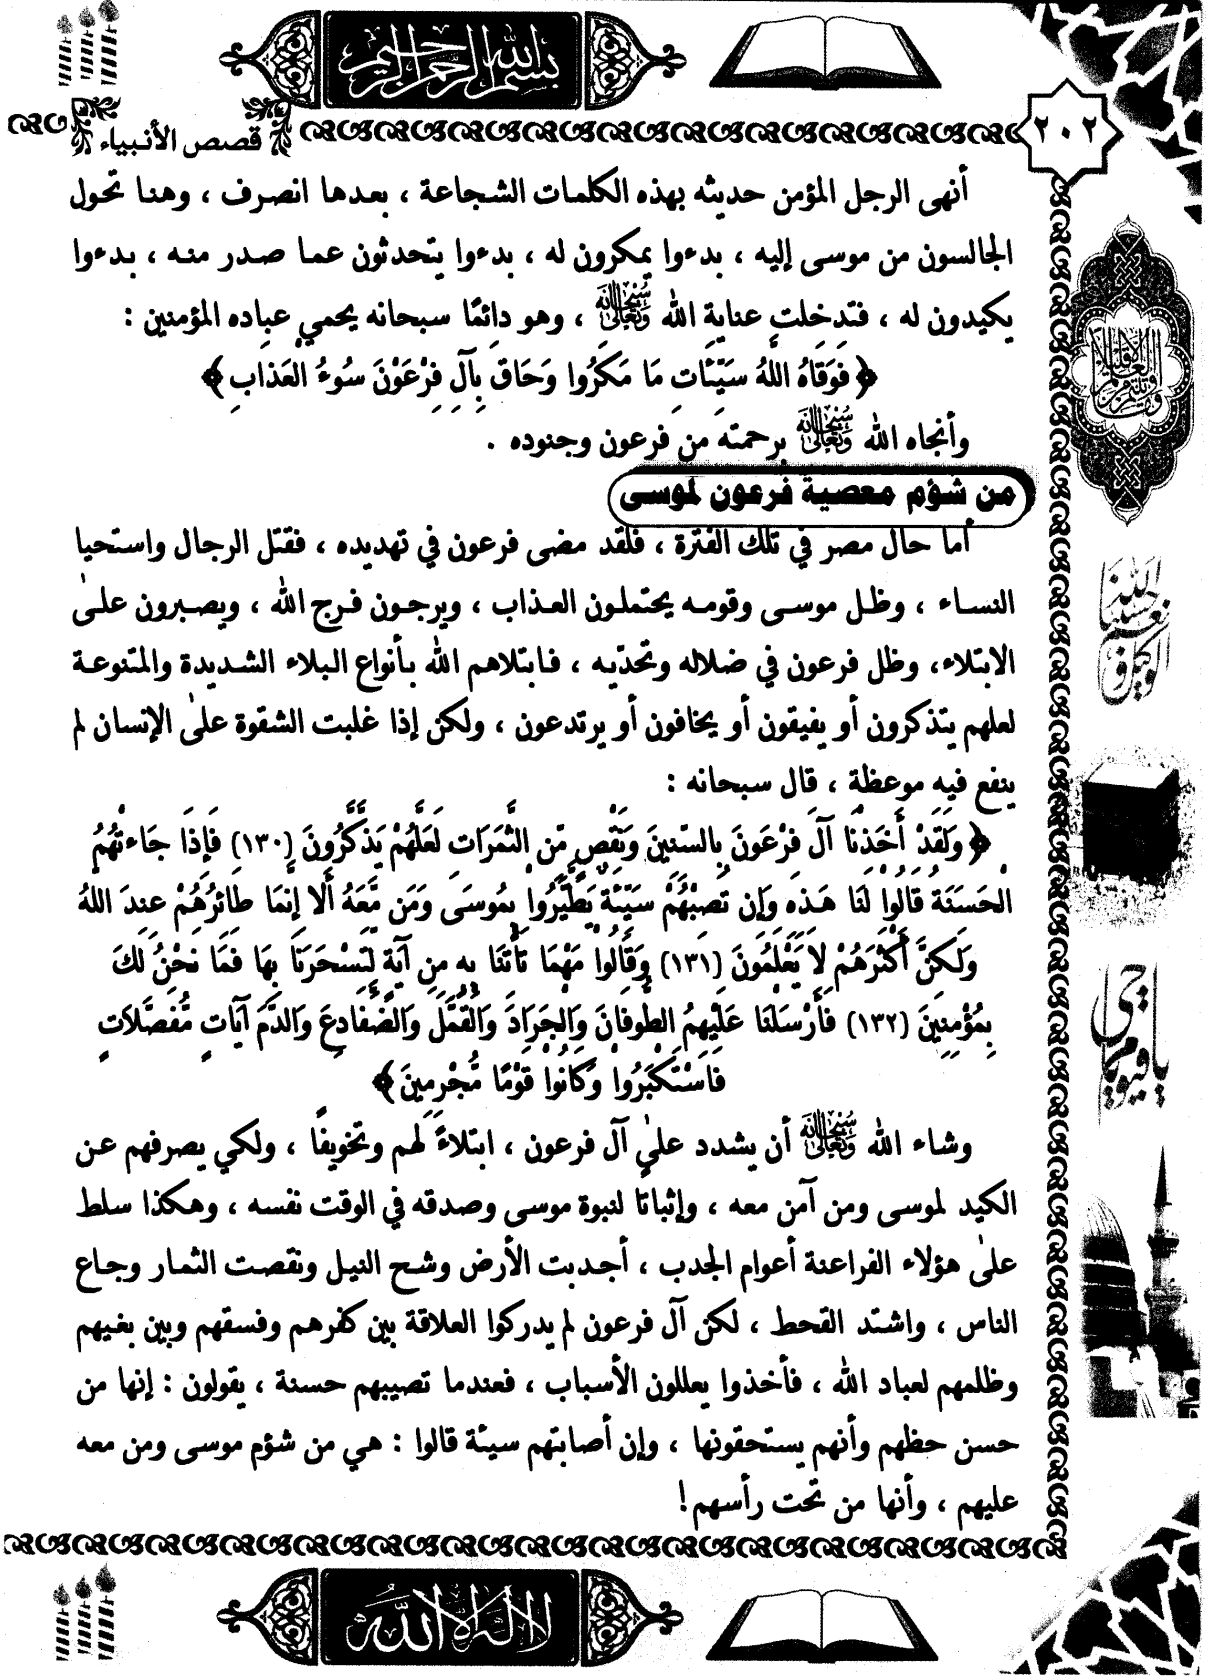 بسم الله الرحمن الرحيم
٢٠٢
قصص الأنبياء
أنهى الرجل المؤمن حديثه بهذه الكلمات الشجاعة ، بعدها انصرف ، وهنا تحول
الجالسون من موسى إليه ، بدءوا يمكرون له ، بدءوا يتحدثون عما صدر منه ، بدءوا
يكيدون له ، فتدخلت عناية الله سبحانه وتعالى ، وهو دائمًا سبحانه يحمي عباده المؤمنين :
﴿ فَوَقَاهُ اللَّهُ سَيِّئَاتِ مَا مَكَرُوا وَحَاقَ بِآلِ فِرْعَوْنَ سُوءُ الْعَذَابِ ﴾
وأنجاه الله سبحانه وتعالى برحمته من فرعون وجنوده .
من شؤم معصية فرعون لموسى
أما حال مصر في تلك الفترة ، فلقد مضى فرعون في تهديده ، فقتل الرجال واستحيا
النساء ، وظل موسى وقومه يحتملون العذاب ، ويرجون فرج الله ، ويصبرون على
الابتلاء، وظل فرعون في ضلاله وتحدّيه ، فابتلاهم الله بأنواع البلاء الشديدة والمتنوعة
لعلهم يتذكرون أو يفيقون أو يخافون أو يرتدعون ، ولكن إذا غلبت الشقوة على الإنسان لم
ينفع فيه موعظة ، قال سبحانه :
﴿ وَلَقَدْ أَخَذْنَا آلَ فِرْعَوْنَ بِالسِّنِينَ وَنَقْصٍ مِّنَ الثَّمَرَاتِ لَعَلَّهُمْ يَذَّكَّرُونَ (١٣٠) فَإِذَا جَاءَتْهُمُ
الْحَسَنَةُ قَالُوا لَنَا هَذِهِ وَإِن تُصِبْهُمْ سَيِّئَةٌ يَطَّيَّرُوا بِمُوسَى وَمَن مَّعَهُ أَلَا إِنَّمَا طَائِرُهُمْ عِندَ اللَّهُ
وَلَكِنَّ أَكْثَرَهُمْ لاَ يَعْلَمُونَ (١٣١) وَقَالُوا مَهْمَا تَأْتِنَا بِهِ مِن آيَةٍ لِّتَسْحَرَنَا بِهَا فَمَا نَحْنُ لَكَ
بِمُؤْمِنِينَ (١٣٢) فَأَرْسَلْنَا عَلَيْهِمُ الطُّوفَانَ وَالْجَرَادَ وَالْقُمَّلَ وَالضَّفَادِعَ وَالدَّمَ آيَاتٍ مُّفَصَّلَاتٍ
فَاسْتَكْبَرُوا وَكَانُوا قَوْمًا مُّجْرِمِينَ ﴾
وشاء الله سبحانه وتعالى أن يشدد على آل فرعون ، ابتلاءً لهم وتخويفًا ، ولكي يصرفهم عن
الكيد لموسى ومن آمن معه ، وإثباتا لنبوة موسى وصدقه في الوقت نفسه ، وهكذا سلط
على هؤلاء الفراعنة أعوام الجدب ، أجدبت الأرض وشح النيل ونقصت الثمار وجاع
الناس ، واشتد القحط ، لكن آل فرعون لم يدركوا العلاقة بين كفرهم وفسقهم وبين بغيهم
وظلمهم لعباد الله ، فأخذوا يعللون الأسباب ، فعندما تصيبهم حسنة ، يقولون : إنها من
حسن حظهم وأنهم يستحقونها ، وإن أصابتهم سيئة قالوا : هي من شؤم موسى ومن معه
عليهم ، وأنها من تحت رأسهم!
حسبنا الله ونعم الوكيل
يا حي يا قيوم
لا إله إلا الله